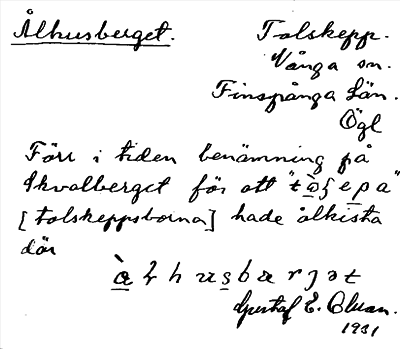 Ålhusberget.
Tolskepp.
Vånga sn.
Finspånga Län.
Ögl
Förr i tiden benämning på
Skvalberget för att
[tolskeppsborna] hade ålkista
där
Gustaf E.
1931